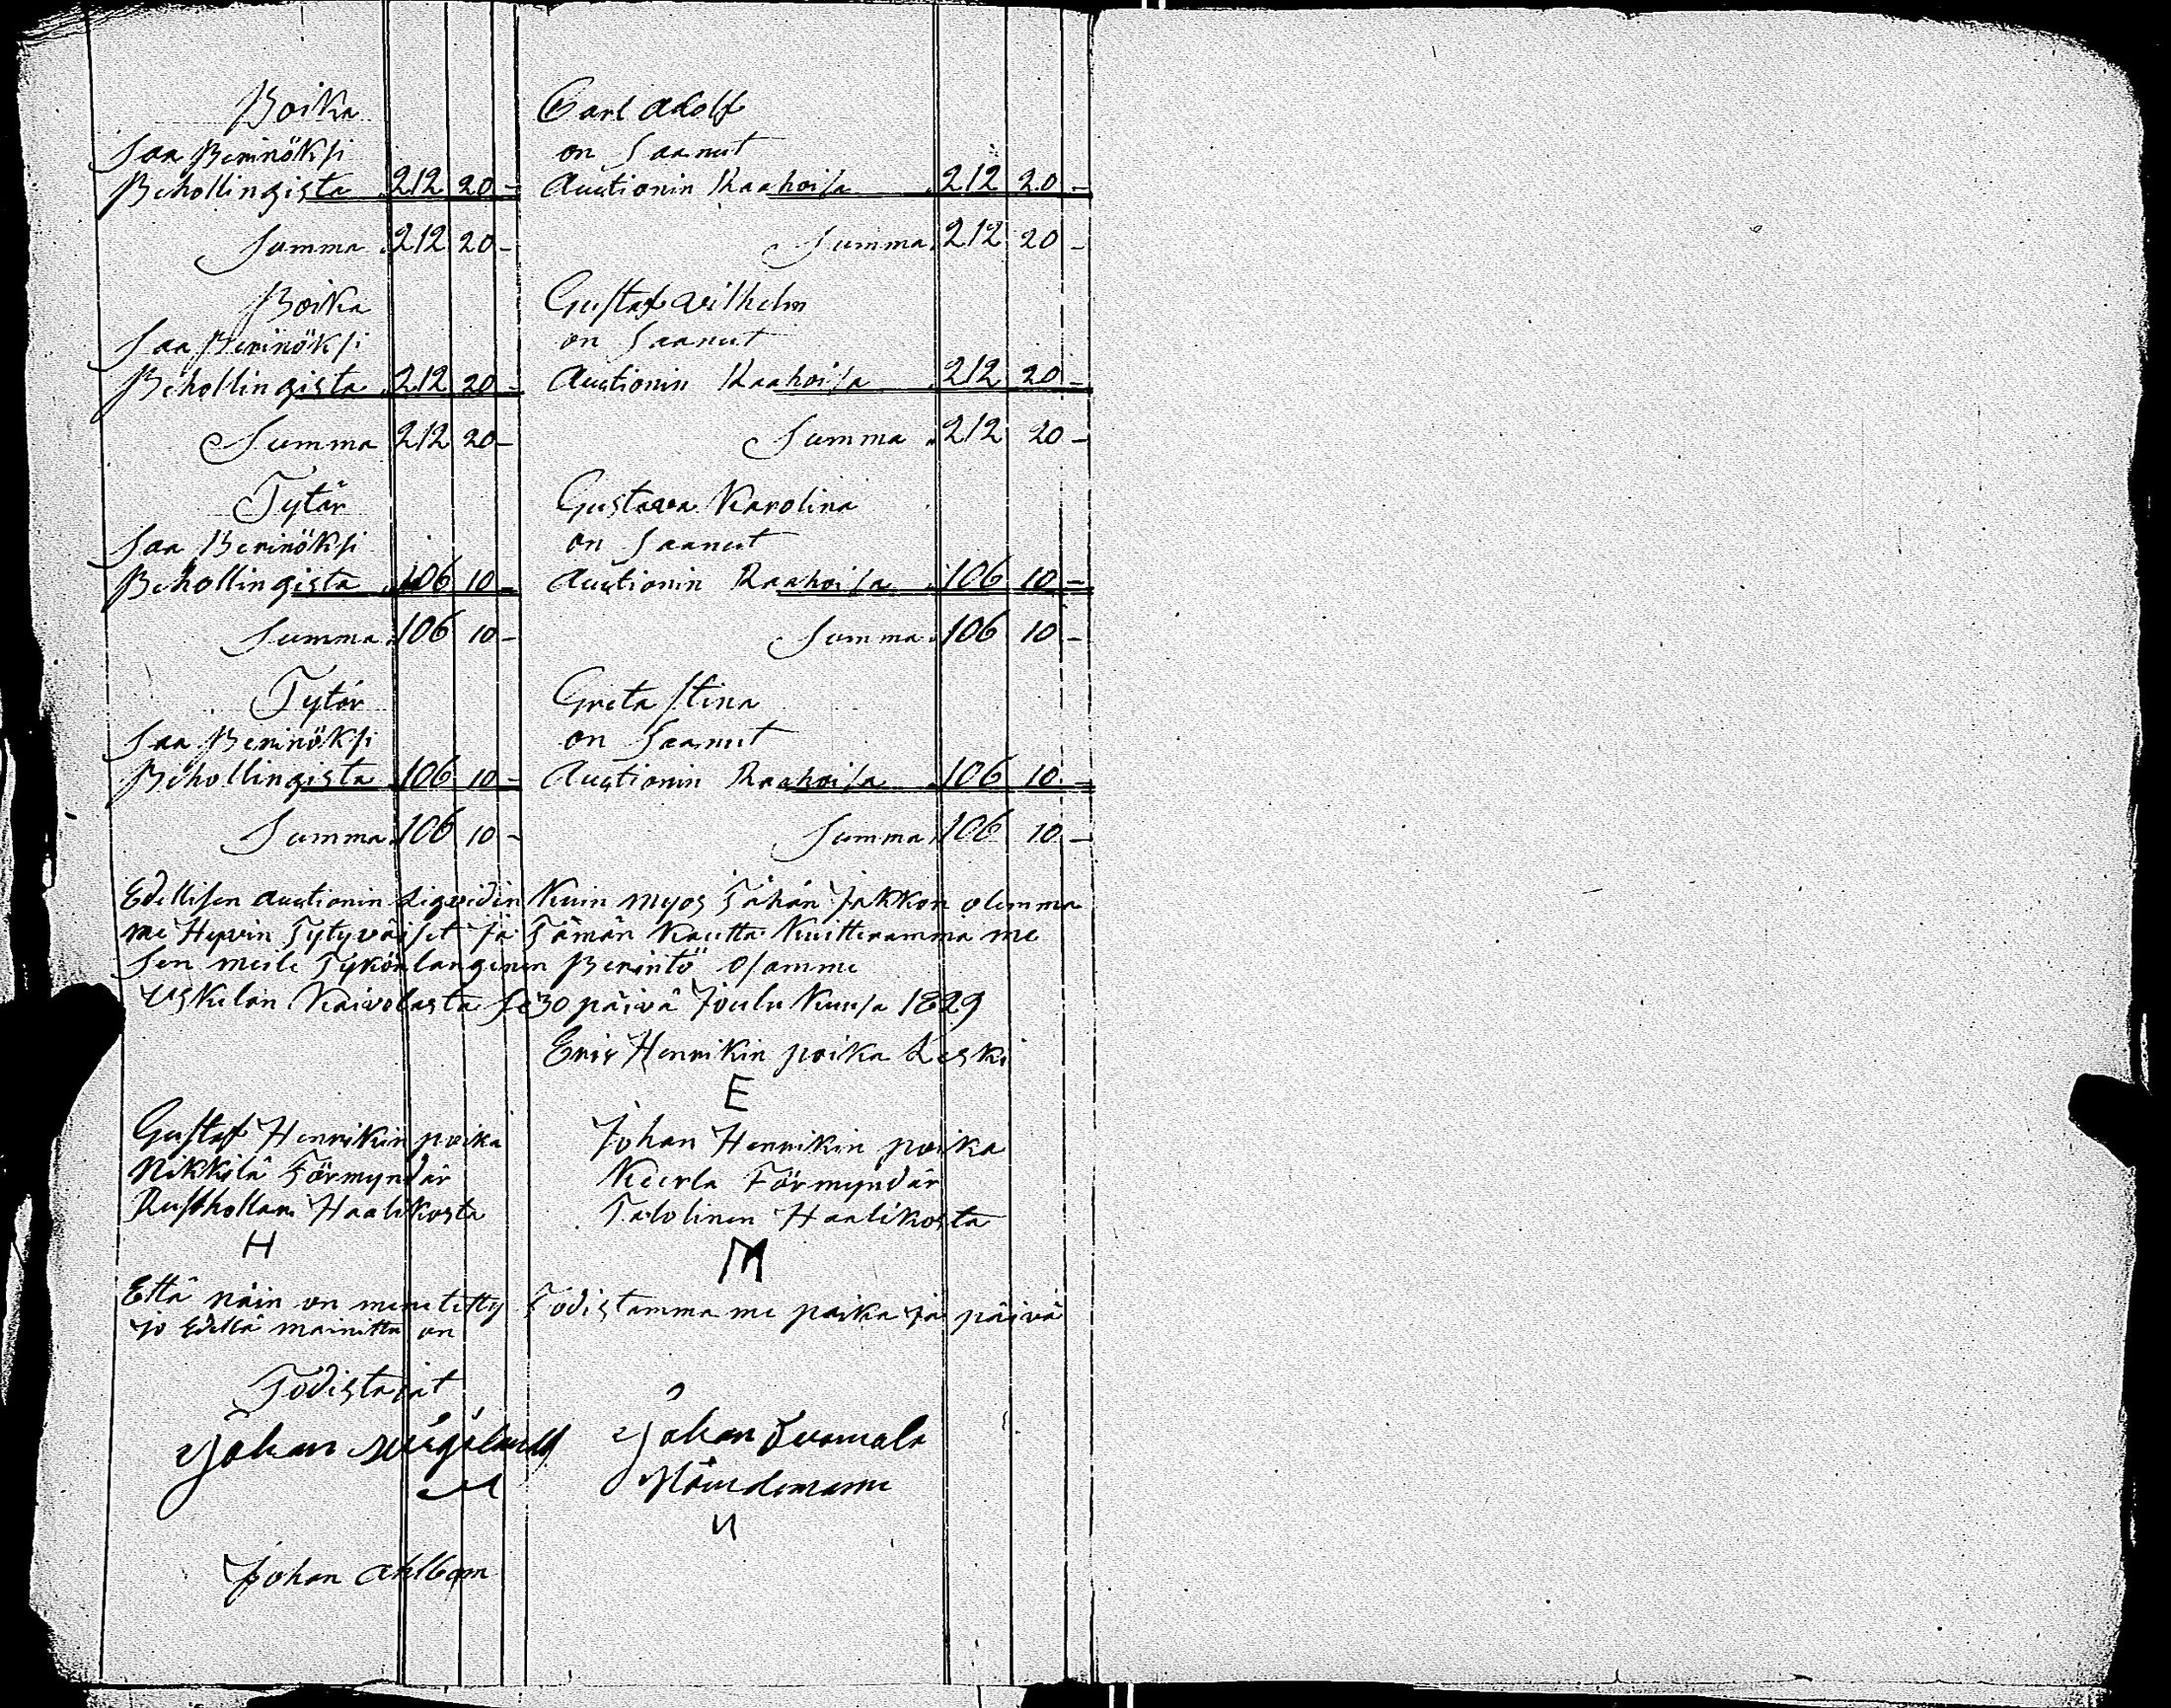 Poika Carl Adolf
saa Perinöksi on saanut
Behollingista 212 20 - Auctionin Raahoisa 212 20 -
Summa 212 20 - Summa 212 20 -
Poika Gustaf Wilhelm
saa Perinöksi on saanut
Behollingista 212 20 - Auctionin Raahoisa 212 20 -
Summa 212 20 - Summa 212 20 -
Tytär Gustava Karolina
saa Perinöksi on saanut
Behollingista 106 10 - Auctionin Raahoisa 106 10 -
Summa 106 10 - Summa 106 10 -
Tytär Greta Stina
saa Perinöksi on saanut
Behollingista 106 10 - Auctionin Raahoisa 106 10 -
Summa 106 10 - Summa 106 10 -
Edellisen Auctionin Liqvidin Kuin myös Tähän Jakkon olemma
me Hyvin Tytyväiset ja Tämän Kautta Kuitteramma me
sen meile Tykönlangenen Perintö Osamme
Uskelan Kaivolasta se 30 päivä Joulu Kuusa 1829
Eric Henrikin poika Leski
E
Gustaf Henrikin poika Johan Henrikin poika
Nikkilä Förmyndär Keerla Förmyndär
Rusthollari Haalikosta Talolinen Haalikosta
H M
Että näin on menetetty Todistamma me paika ja päivä
jo Edellä mainittu on
Todistajat
Johan Johan Suomala
Nämdemann
Johan Ahlbom